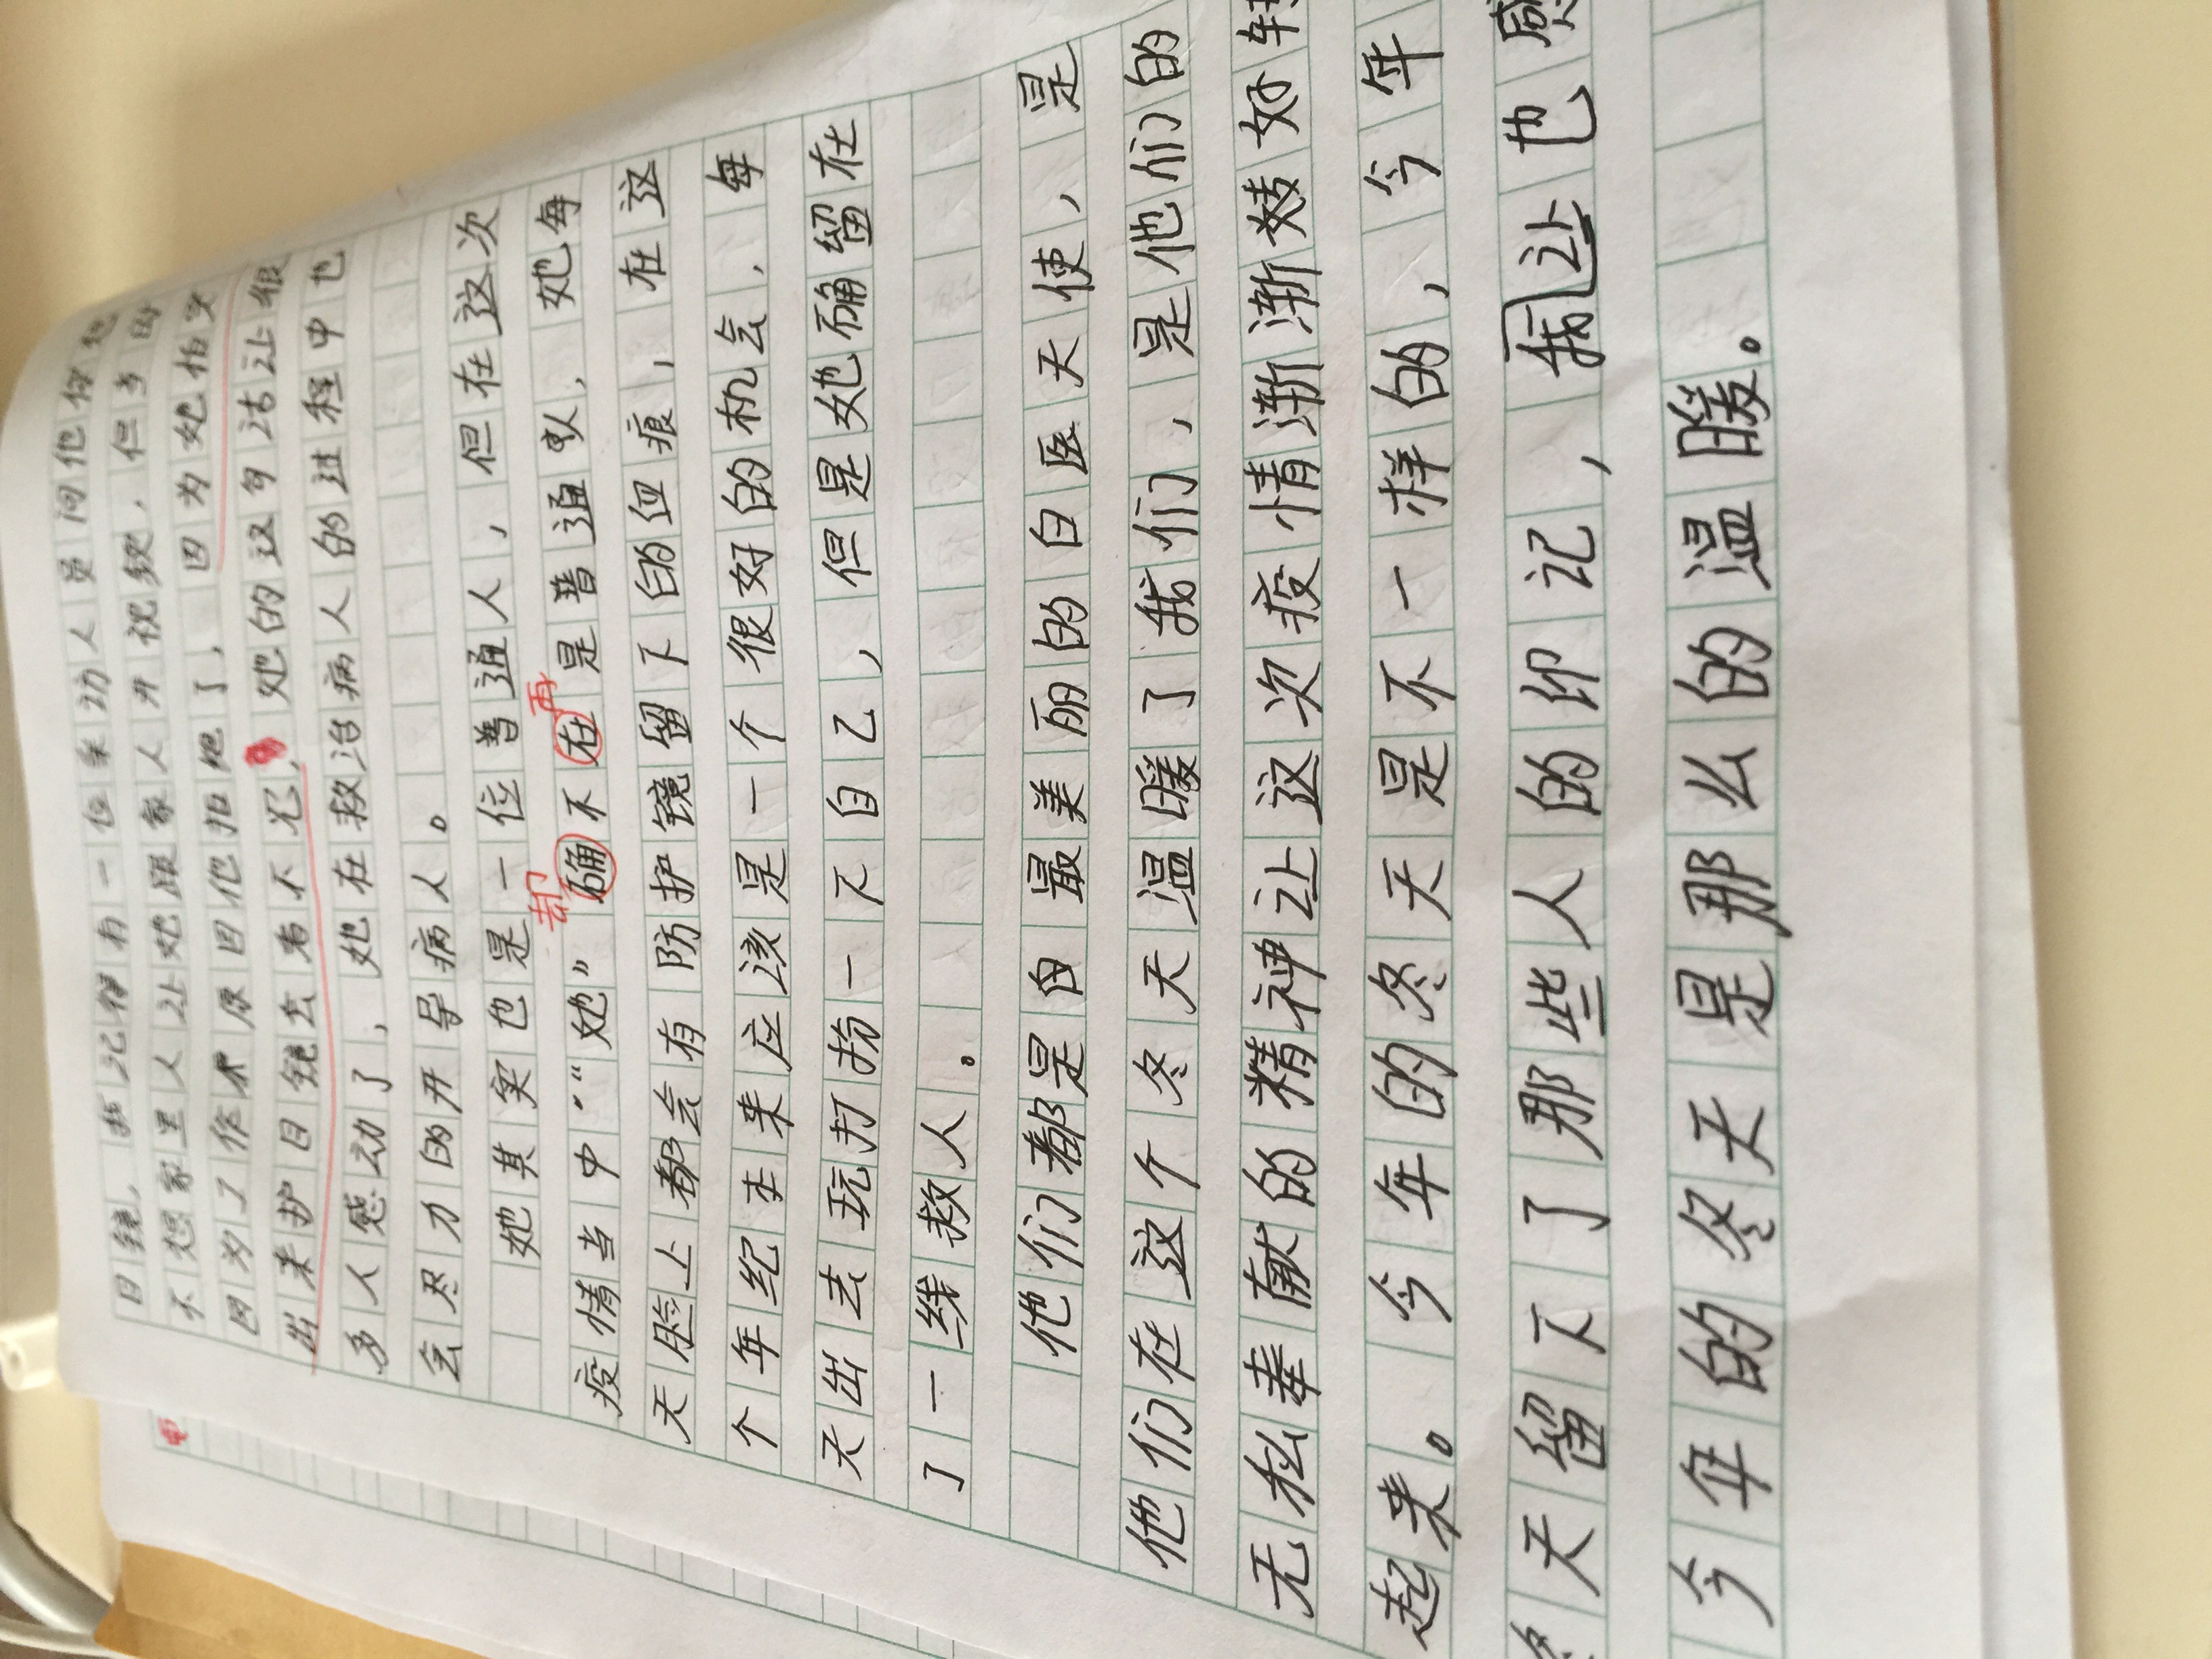 目镜，我记得有一位采访人员问他你想
不想家里人让她跟家人开视频，但当时
因为工作原因他拒绝了，因为她怕哭
出来护目镜会看不见，她的这句话让很
多人感动了，她在救治病人的过程中也
会尽力的开导病人。
她其实也是一位普通人，但在这次
疫情当中，“她”确不在是普通人，她每
却 再
天脸上都会有防护镜留下的血痕，在这
个年纪本来应该是一个很好的机会，每
天出去玩打扮一下自己，但是她确留在
了一线救人。
他们都是白最美丽的白医天使，是
他们在这个冬天温暖了我们，是他们的
无私奉献的精神让这次疫情渐渐好转
起来。今年的冬天是不一样的，今年
冬天留下了那些人的印记，让也感
今年的冬天是那么的温暖。